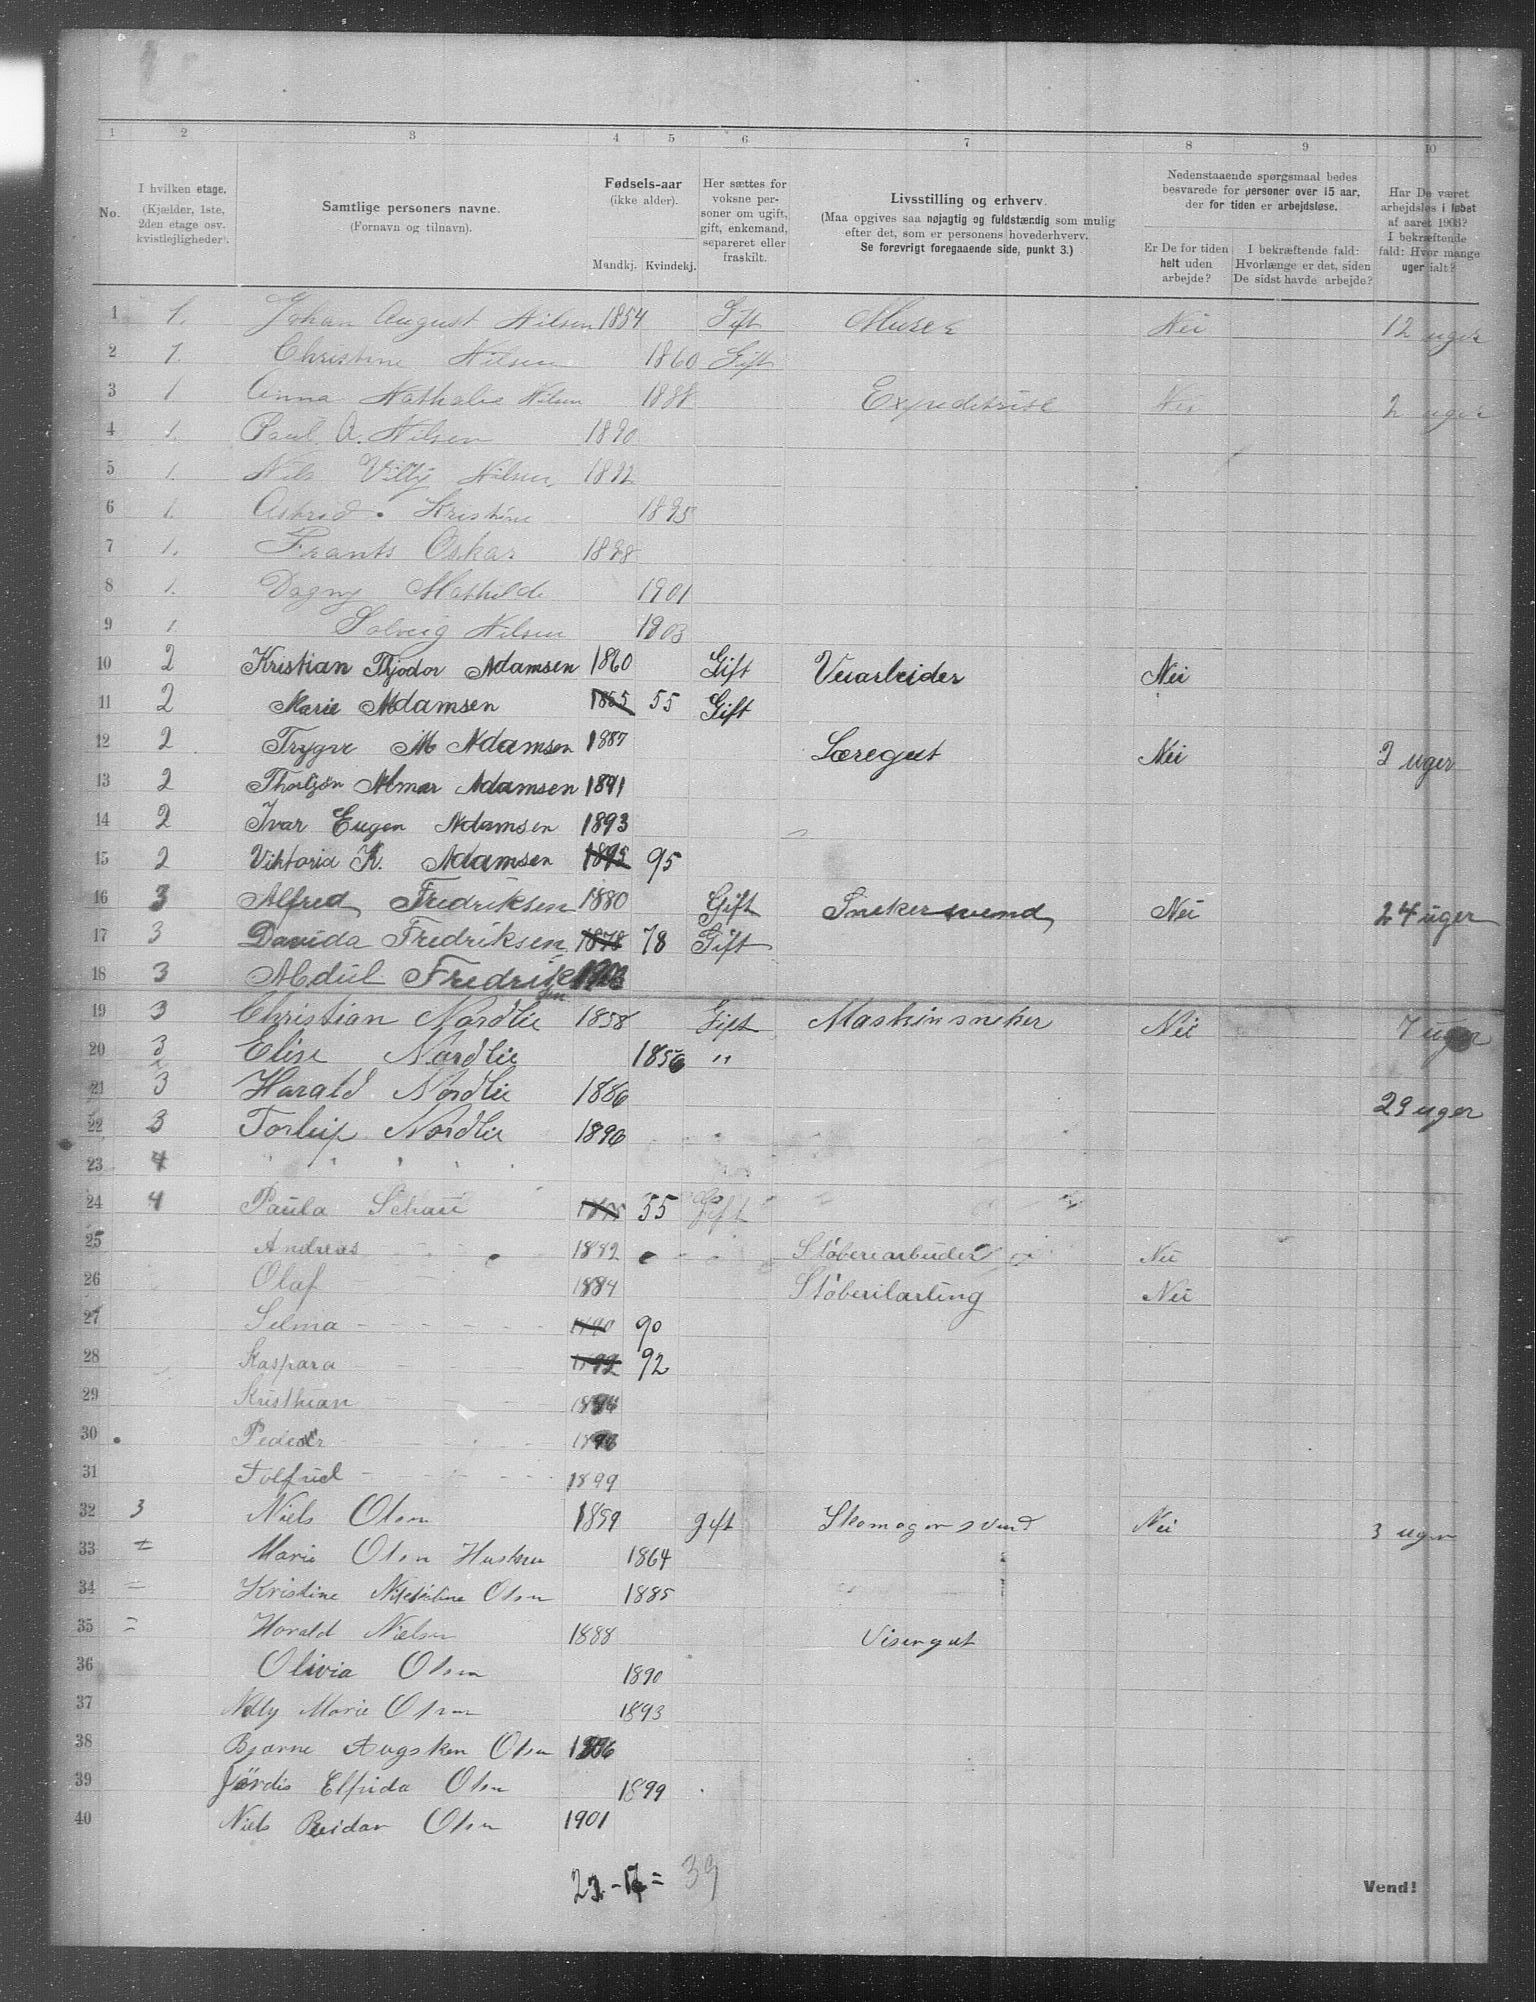 1 2 3 4 5 6 7 8 9 10
No.
I hvilken etage.
(Kjælder, 1ste,
2den etage osv.
kvistlejligheder).
Samtlige personers navne.
(Fornavn og tilnavn).
Fødsels-aar
(ikke alder).
Mandkj. Kvindekj.
Her sættes for
voksne per-
soner om ugift,
gift, enkemand,
separeret eller
fraskilt.
Livsstilling og erhverv.
(Maa opgives saa nøjagtig og fuldstændig som mulig
efter det, som er personens hovederhverv.
Se forøvrigt foregaaende side, punkt 3.)
Nedenstaaende spørgsmaal bedes
besvarede for personer over 15 aar,
der for tiden er arbejdsløse.
Er De for tiden
helt uden
arbejde?
I bekræftende fald:
Hvorlænge er det, siden
De sidst havde arbejde?
Har De været
arbejdsløs i løbet
af aaret 1903?
I bekræftende
fald: Hvor mange
uger ialt?
1 1. Johan August Nilsen 1854 Gift Murer Nei 12 uger
2 1. Christine Nilsen 1860 Gift
3 1 Anna Nathalie Nilsen 1888 Expeditrise Nei 2 uger
4 1. Paul A. Nilsen 1890
5 1. Nils Villy Nilsen 1892
6 1. Astrid Kristine 1895
7 1. Frants Oskar 1898
8 1. Dagny Mathilde 1901
9 1. Solveig Nilsen 1903
10 2 Kristian Thjodor Adamsen 1860 Gift Veiarbeider Nei
11 2 Marie Adamsen 1855 55 Gift
12 2 Trygve M Adamsen 1887 Læregut Nei 2 uger
13 2 Thorbjøn Almar Adamsen 1891
14 2 Ivar Eugen Adamsen 1893
15 2 Viktoria K. Adamsen 1895 95
16 3 Alfred Fredriksen 1880 Gift Snekersvend Nei 24 uger
17 3 Davida Fredriksen 1878 78 Gift
18 3 Fredriksen 1903
19 3 Christian Nordlie 1858 Gift Maskinsneker Nei 7 uger
20 3 Elise Nordlie 1856 "
21 3 Harald Nordlie 1886 29 uger
22 3 Torleip Nordlie 1896
23 4 " " " "
24 4 Paula 55 Gift
25 Andreas 1882 Støberiarbeider Nei
26 Olaf - - 1884 Støberilærling Nei
27 Selma - - - - 1890 90
28 Kaspara - - - 1892 92
29 Kristhian - -
30 Peder
31 - - - 1899
32 3 Niels Olsen 1859 gift Skomagersvend Nei 3 uger
33 = Marie Olsen Hustru 1864
34 = Kristine Olsen 1885
35 = Harald Nielsen 1888 Visergut
36 Olivia Olsen 1890
37 Nelly Marie Olsen 1893
38 Bjarne Olsen 1896
39 Jördis Elfrida Olsen 1899
40 Niels Reidar Olsen 1901
39
Vend!